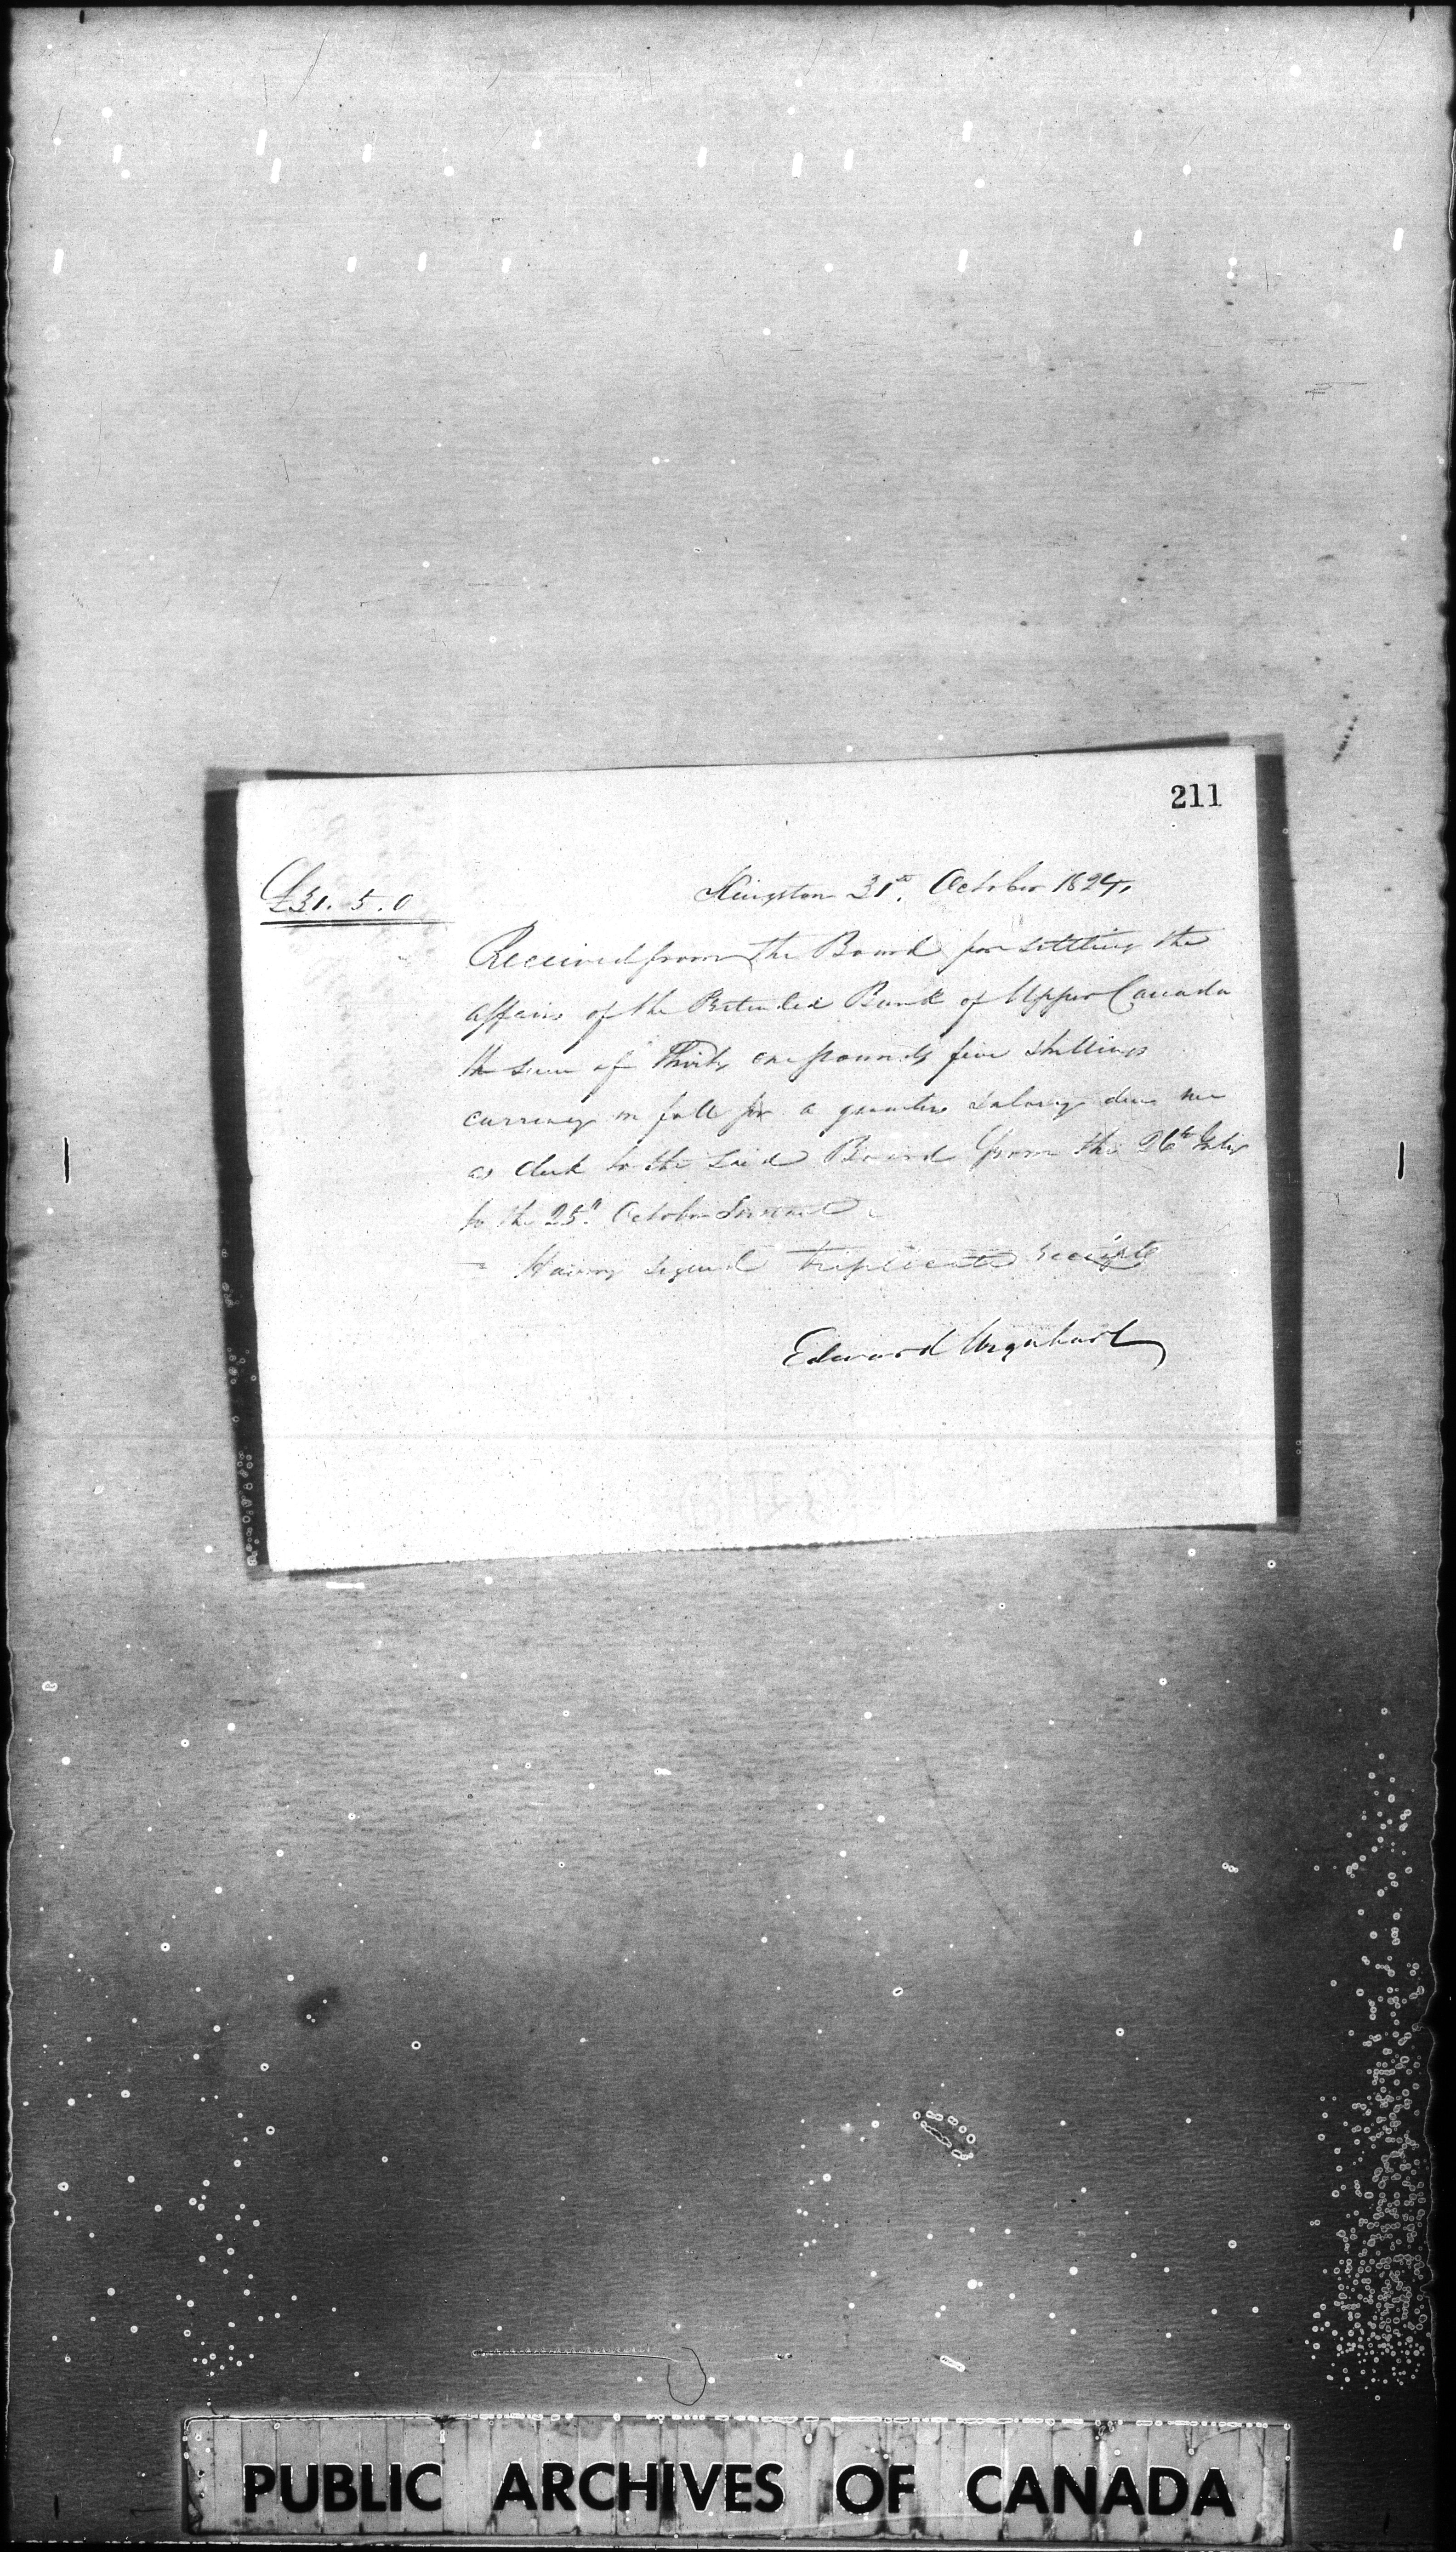 211
£31. 5. 0
Kingston 31st October 1824,
Received from the Board for settling the
affairs of the Pretended Bank of Upper Canada
the sum of Thirty one pounds five shillings
currency in full for a quarters salary due me
as Clerk to the said Board from the 26th July
to the 25th October Instant
Having signed triplicate receipts
Edward Urquhart
PUBLIC ARCHIVES OF CANADA